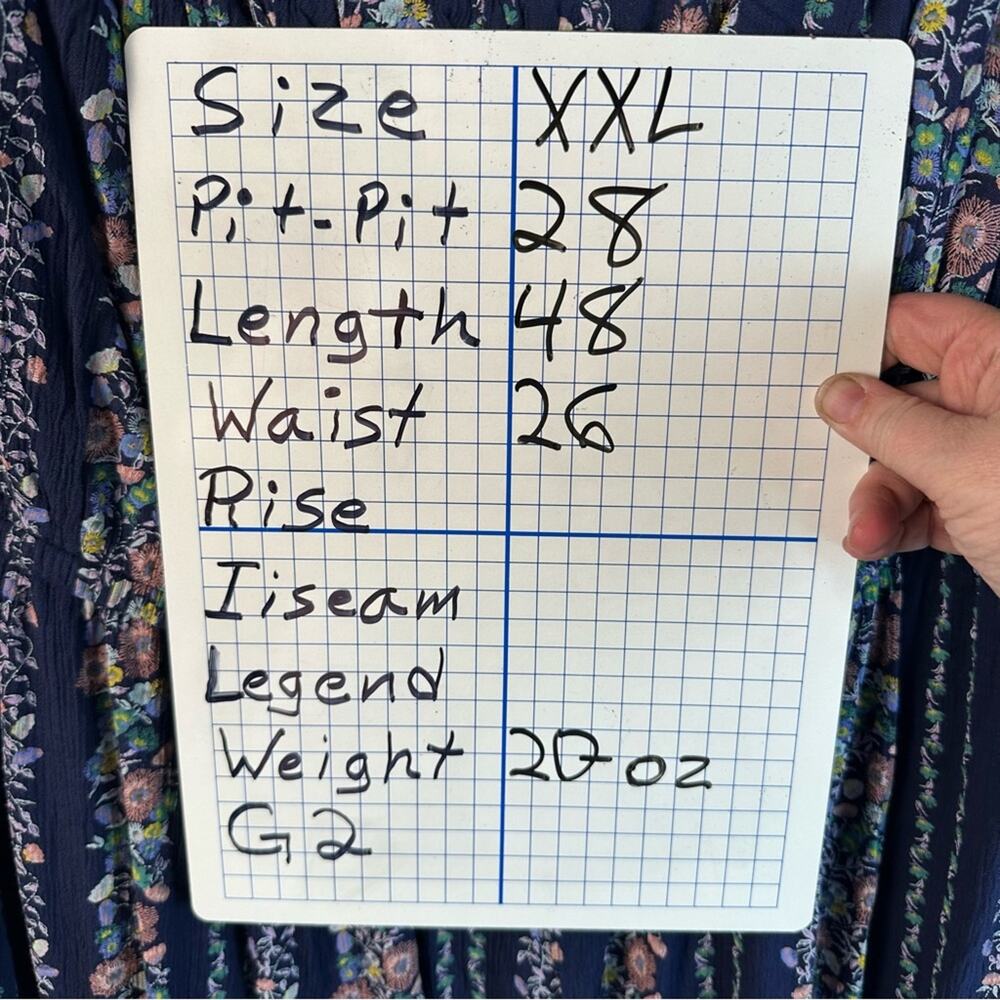 Size XXL
Pit-Pit 28
Length 48
Waist 26
Rise
Iiseam
Legend
Weight 20 oz
G2